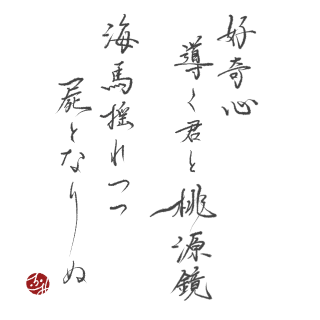 好奇心
導く君と桃源鏡
海馬揺れつつ
屍となりしぬ